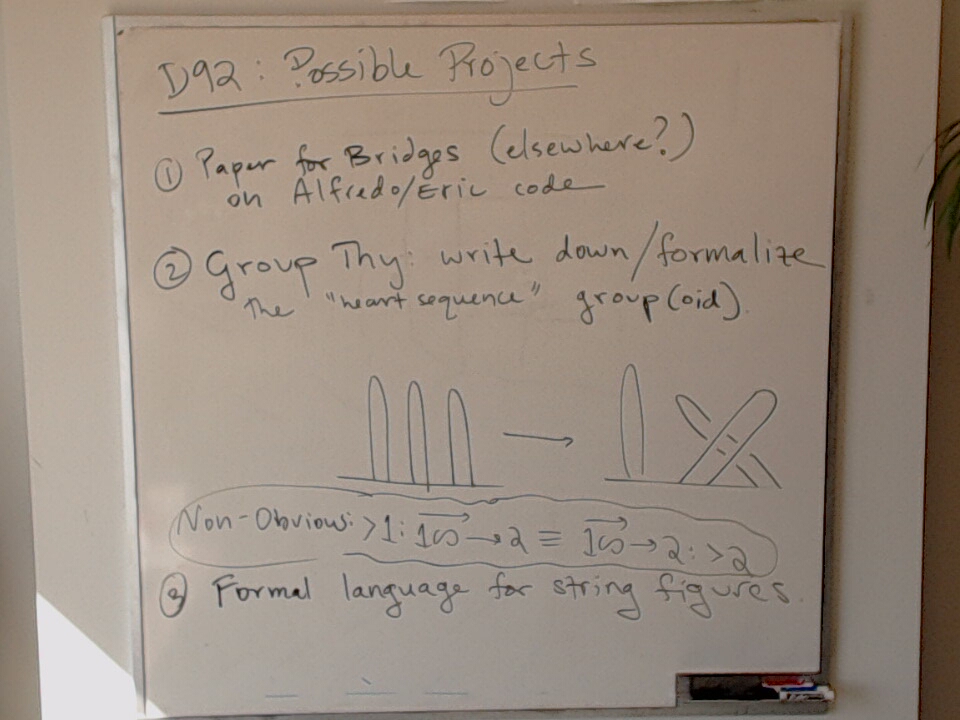 D92: Possible Projects
① Paper for Bridges (elsewhere?)
on Alfredo/Eric code
② Group Thy: write down/formalize
the "heart sequence" group(oid).
Non-Obvious: >1: 1∞ → 2 ≡ 1∞ → 2: >2
③ Formal language for string figures.